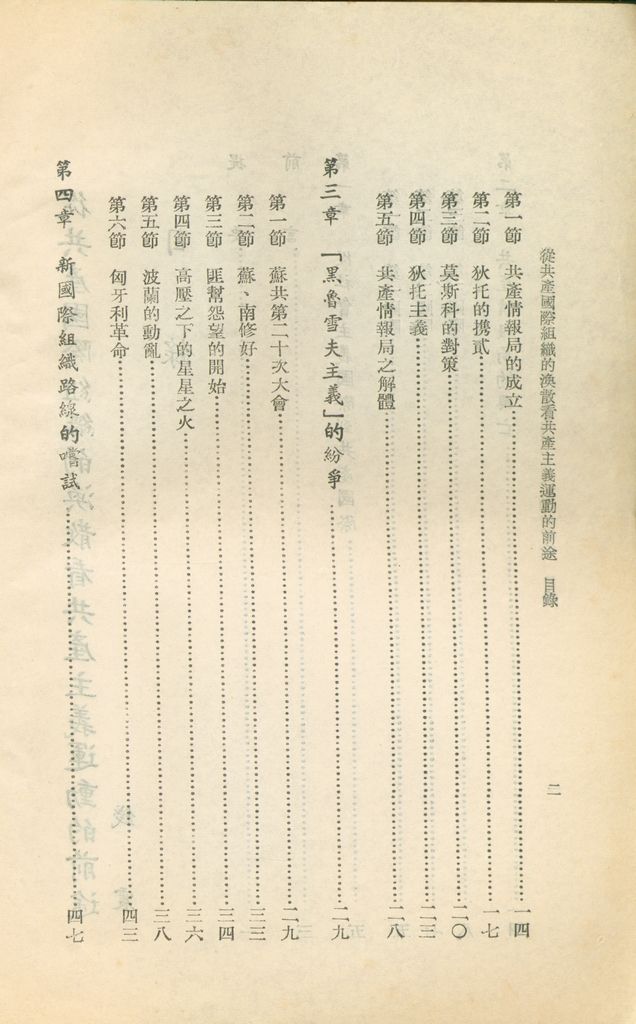 從共產國際組織的渙散看共產主義運動的前途 目錄
二
第一節 共產情報局的成立 一四
第二節 狄托的携貳 一七
第三節 莫斯科的對策 二〇
第四節 狄托主義 二三
第五節 共產情報局之解體 二八
第三章 「黑魯雪夫主義」的紛爭 二九
第一節 蘇共第二十次大會 二九
第二節 蘇、南修好 三三
第三節 匪幫怨望的開始 三四
第四節 高壓之下的星星之火 三六
第五節 波蘭的動亂 三八
第六節 匈牙利革命 四三
第四章 新國際組織路線的嚐試 四七